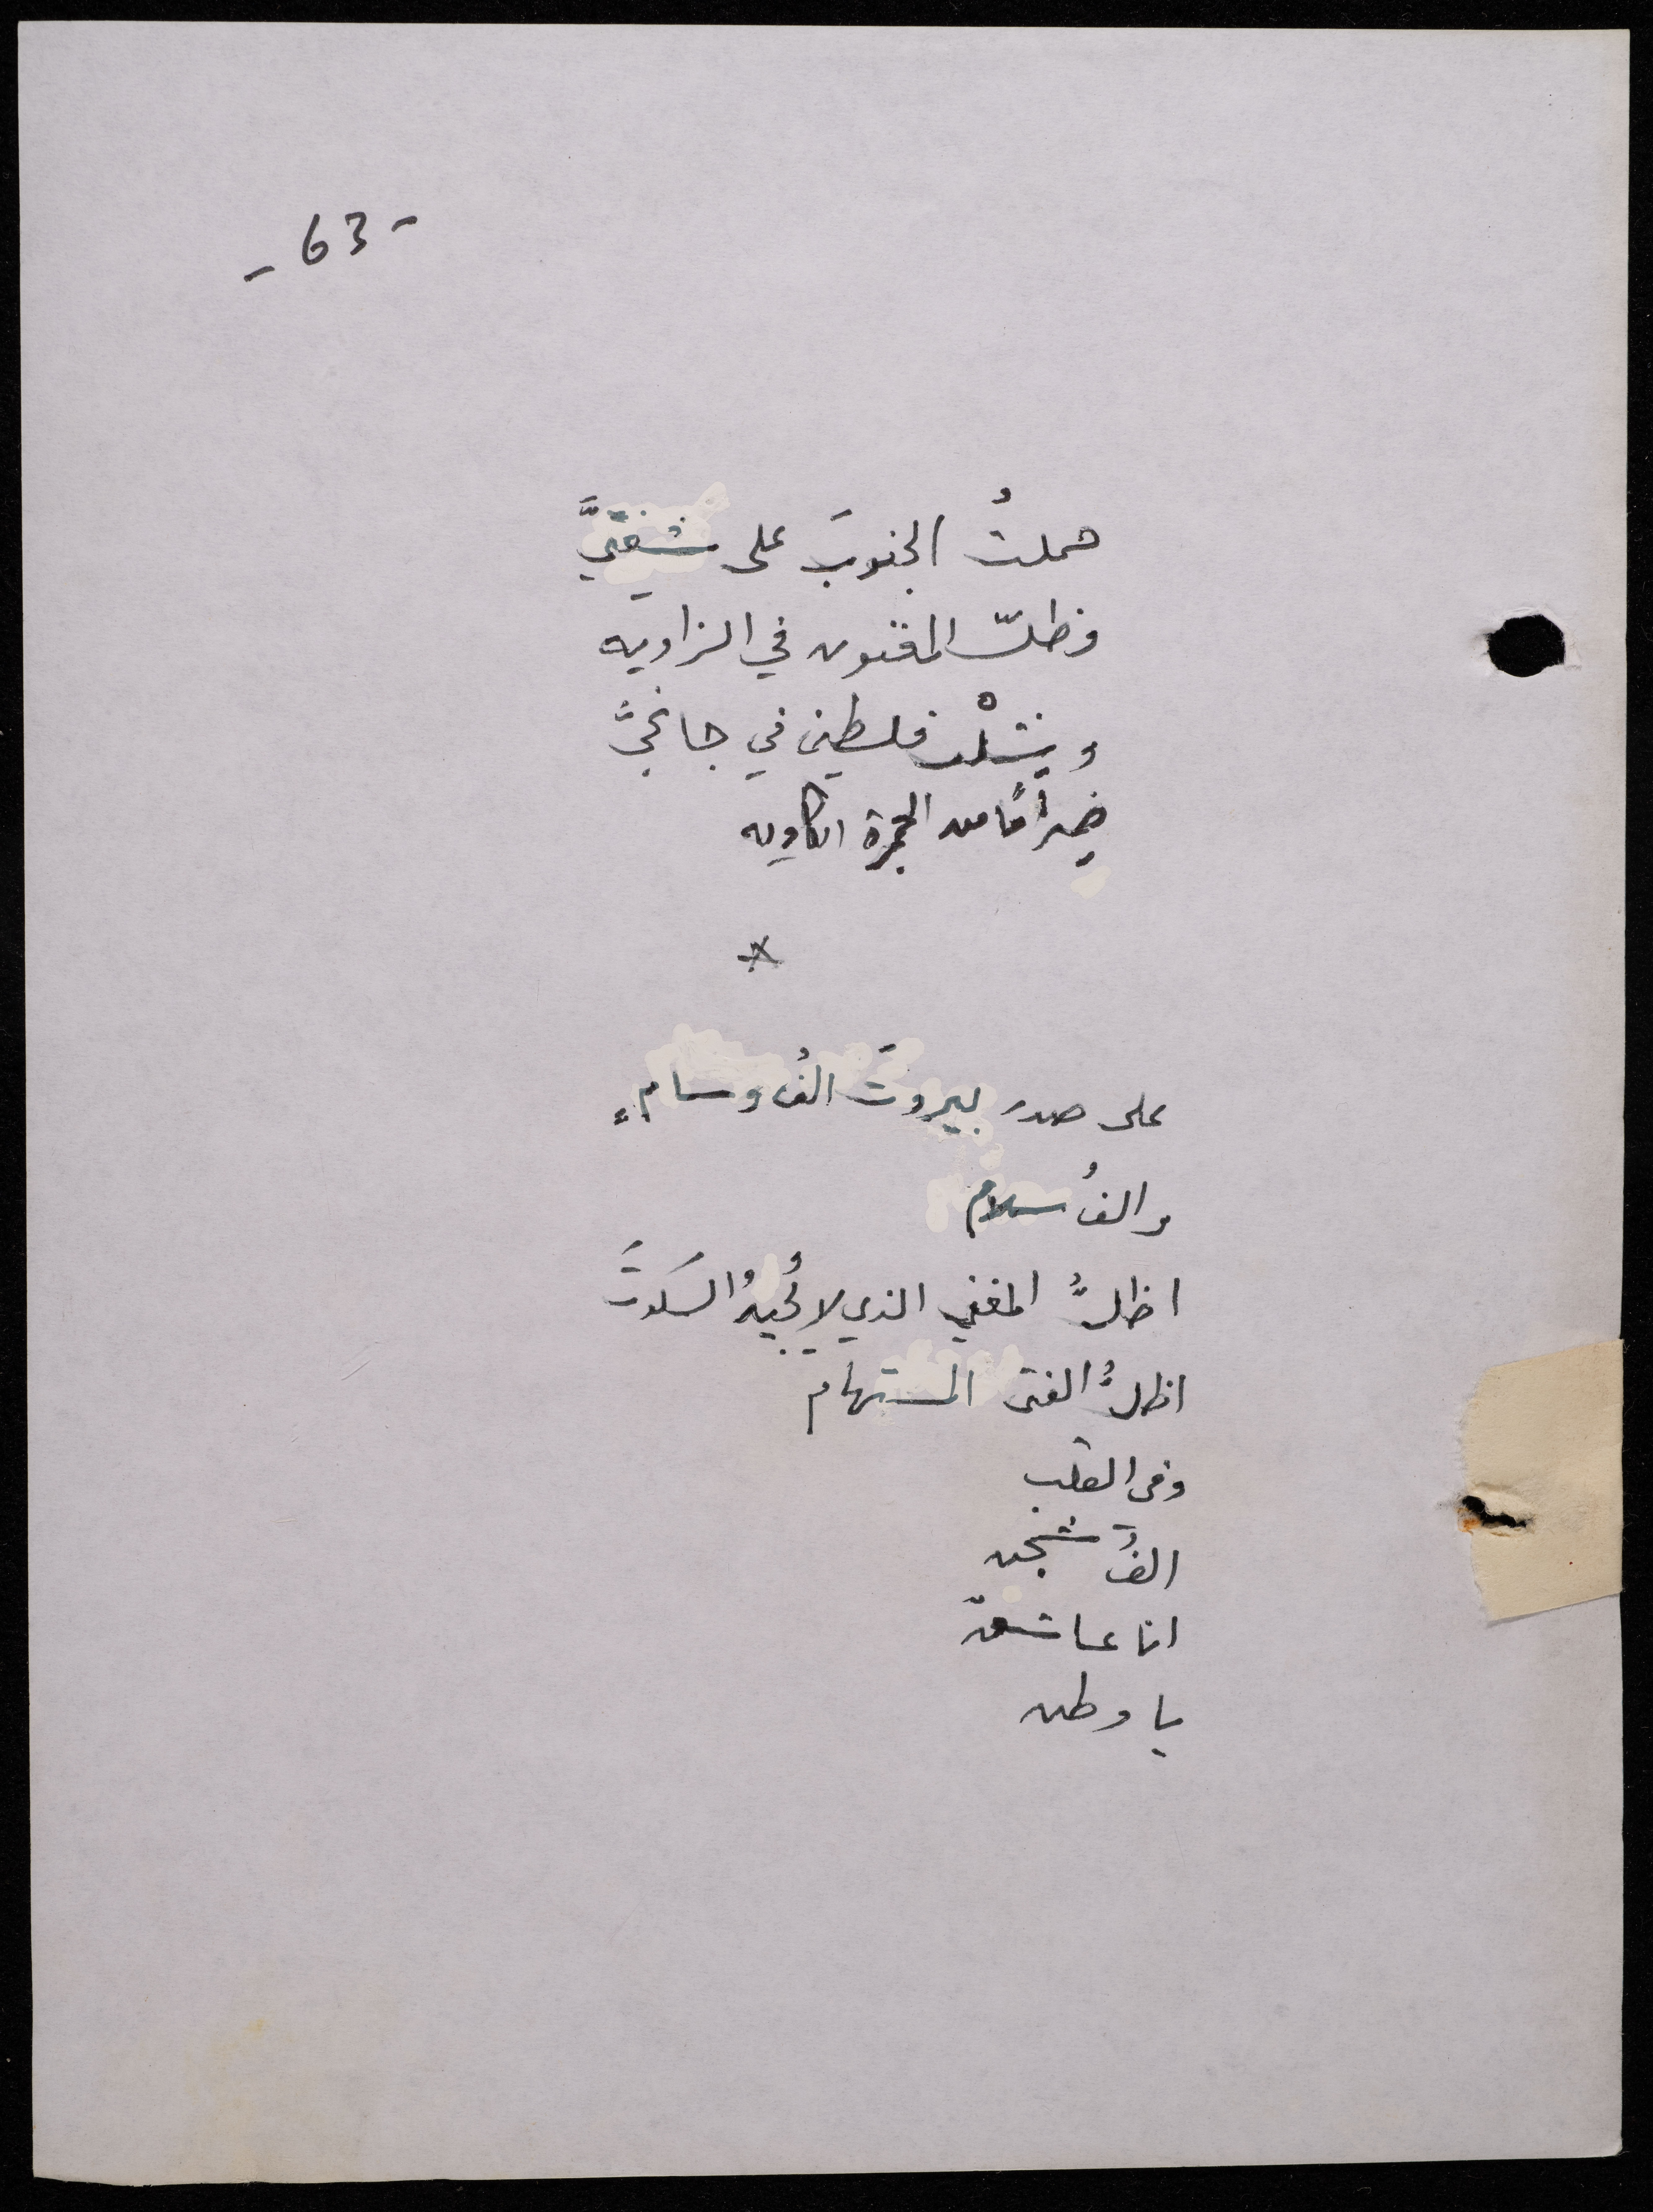 - 63 -
حملتُ الجنوبَ على شفتيَّ
فظلّت المتون في الزاويه
وشلْت فلسطين في جانحيَّ
ضِرامًا من الجمرة الكاويه
*
على صدر بيروتَ الفُ وسامٍ
والفُ سلام
اظلُّ المغني الذي لا يُجيدُ السكوتَ
اظلُّ الفتى المستهام
وفي القلب
الفُ شجنٍ
انا عاشقٌ
يا وطن